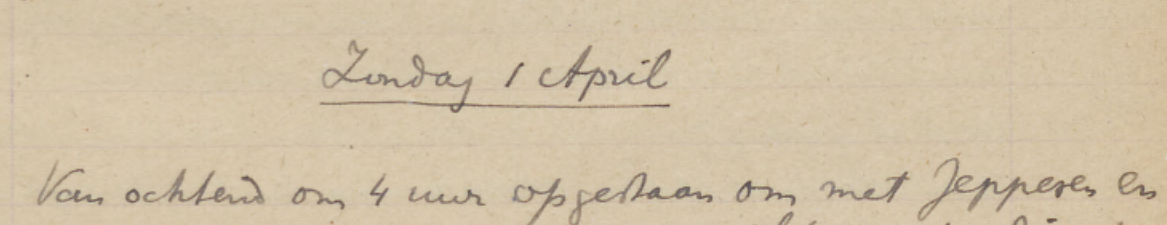 Zondag 1 April
Van ochtend om 4 uur opgestaan om met Jeppesen en